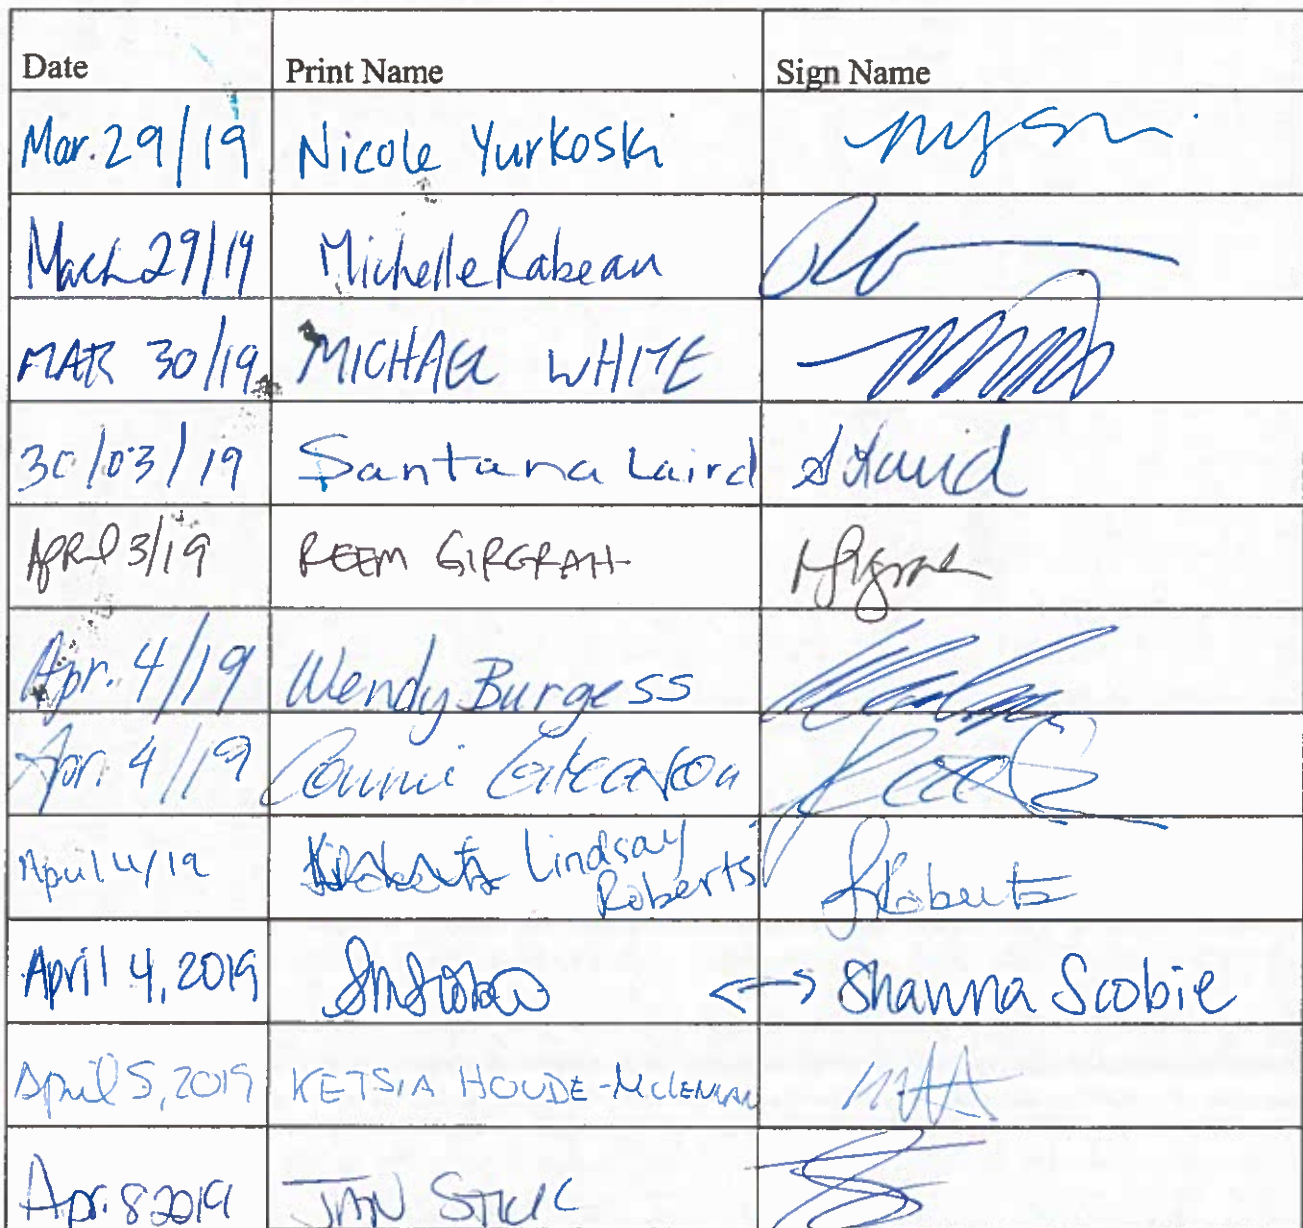 Date Print Name Sign Name
Mar. 29/19 Nicole Yurkoski
March 29/19 Michelle Rabeau
MAR 30/19 MICHAEL WHITE
30/03/19 Santana Laird SLaird
APRIL 3/19 REEM GIRGRAH
Apr. 4/19 Wendy Burgess
Apr. 4/19
April 4/19 Lindsay
Roberts LRoberts
April 4, 2019 ↔ Shawna Scobie
April 5, 2019 KETSIA HOUDE-MCLENNAN
Apr. 8 2019 JAN